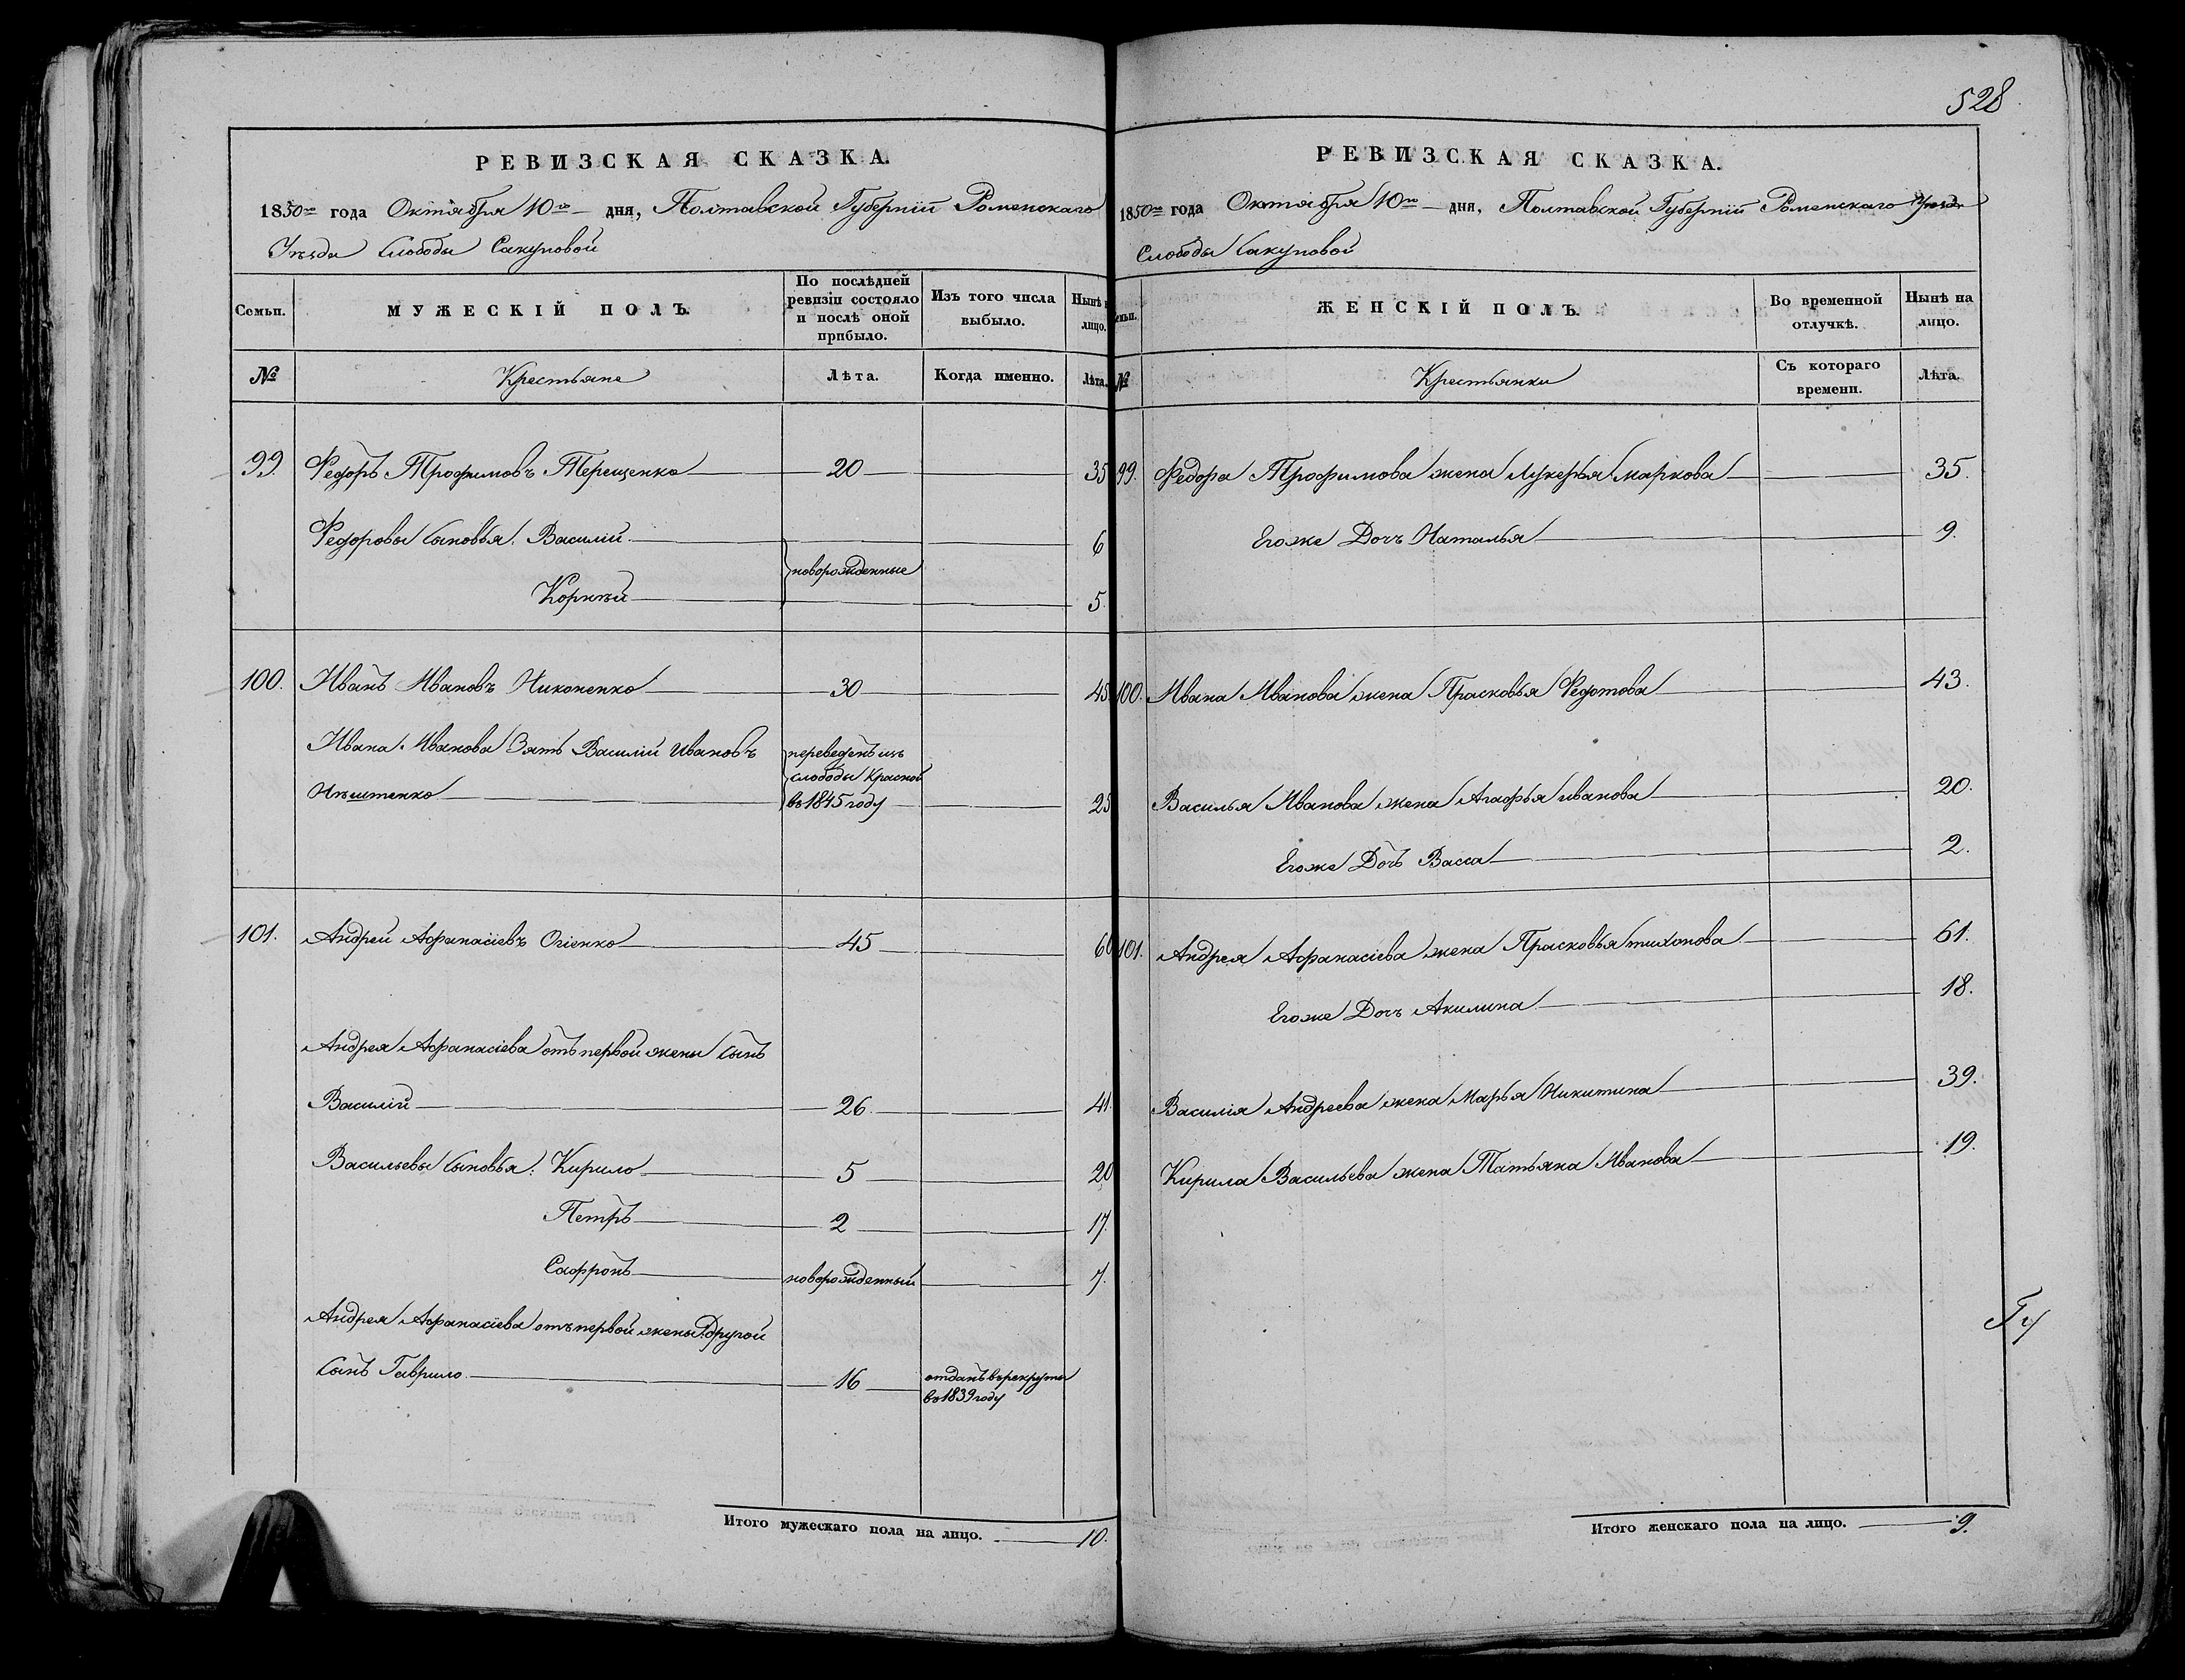 РЕВИЗСКАЯ СКАЗКА.
1850го года Октября 10го дня, Полтавской Губерніи Роменскаго
Уѣзда Слободы Сакуновой
Семьи. МУЖЕСКІЙ ПОЛЪ. По послѣдней ревизіи состояло и послѣ оной прибыло. Изъ того числа выбыло. Нынѣ на лицо.
№ Крестьяне Лѣта. Когда именно. Лѣта.
99. Федоръ Трофимовъ Терещенко 20 35
Федоровы Сыновья: Василій 6
новорожденные
Корнѣй 5.
100. Иванъ Ивановъ Никоненко 30 45.
Ивана Иванова Зять Василій Ивановъ переведенъ изъ
слободы Красной
въ 1845 году 25
101. Андрей Афанасіевъ Огіенко 45 60
Андрея Афанасіева отъ первой жены Сынъ
Василій 26. 41.
Васильевы Сыновья: Кирило 5 20
Петръ 2 17.
Сафронъ новорожденный 7.
Андрея Афанасіева отъ первой жены другой
Сынъ Гаврило 16 отданъ в рекруты
въ 1839 году
Итого мужескаго пола на лицо. 10.
528
РЕВИЗСКАЯ СКАЗКА.
1850го года Октября 10го дня, Полтавской Губерніи Роменскаго Уѣзда
Слободы Сакуновой
Семьи. ЖЕНСКІЙ ПОЛЪ. Во временной отлучкѣ. Нынѣ на лицо.
№ Крестьянки Съ котораго времени. Лѣта.
99. Федора Трофимова жена Лукерья Маркова 35.
Егоже Дочь Наталья 9.
100. Ивана Иванова жена Прасковья Федотова 43.
Василья Иванова жена Агафья Иванова 20.
Егоже Дочь Васса 2.
101. Андрея Афанасіева жена Прасковья Тихонова 61.
Егоже Дочь Акилина 18.
Василія Андреева жена Марья Никитина 39.
Кирила Васильева жена Татьяна Иванова 19.
Итого женскаго пола на лицо. 9.